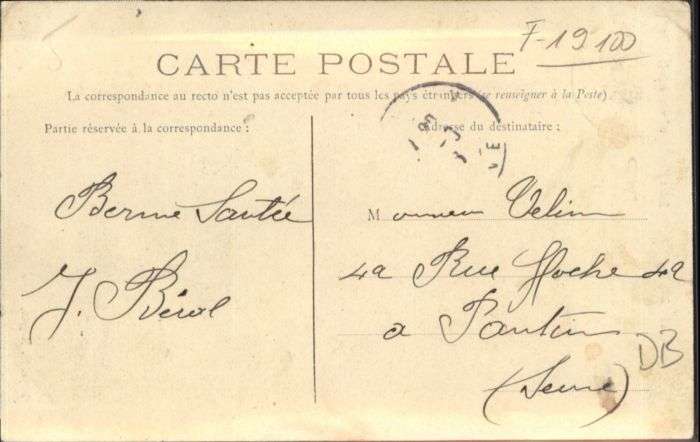 F-19100
CARTE POSTALE
La correspondance au recto n'est pas acceptée par tous les pays étrangers (se renseigner à la Poste).
Partie réservée à la correspondance :
Adresse du destinataire :
Bonne Santée
J. Bérol
Monsieur Velin
42 Rue Hoche 42
a Pantin
(Seine)
DB